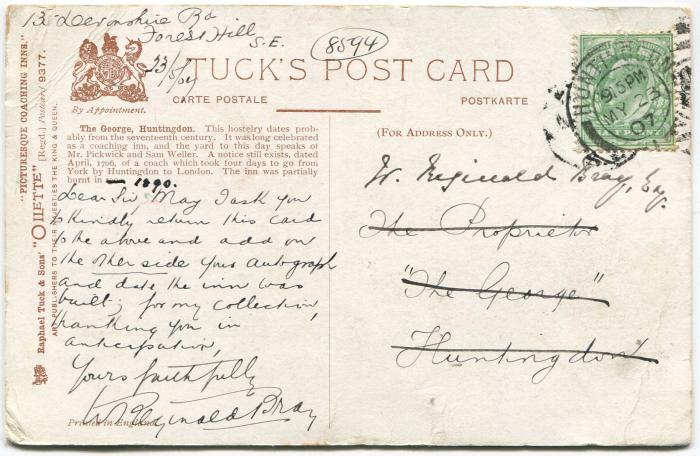 13 Devonshire Rd
Forest Hill
S.E.
8594
23/5/07
TUCK'S POST CARD
CARTE POSTALE
POSTKARTE
By Appointment.
(FOR ADDRESS ONLY.)
The George, Huntingdon. This hostelry dates prob-
ably from the seventeenth century. It was long celebrated
as a coaching inn, and the yard to this day speaks of
Mr. Pickwick and Sam Weller. A notice still exists, dated
April, 1706, of a coach which took four days to go from
York by Huntingdon to London. The inn was partially
burnt in 1890.
Dear Sir, May I ask you
to kindly return this card
to the above and add on
the other side your autograph
and date the inn was
built; for my collection,
thanking you in
anticipation,
Yours faithfully
W Reginald Bray
Printed in England.
W. Reginald Bray, Esq.
The Proprietor
"The George"
Huntingdon
"PICTURESQUE COACHING INNS."
Raphael Tuck & Sons' "OILETTE" [Regd.] Postcard 9377.
ART PUBLISHERS TO THEIR MAJESTIES THE KING & QUEEN.
9.15 PM
MY 23
07